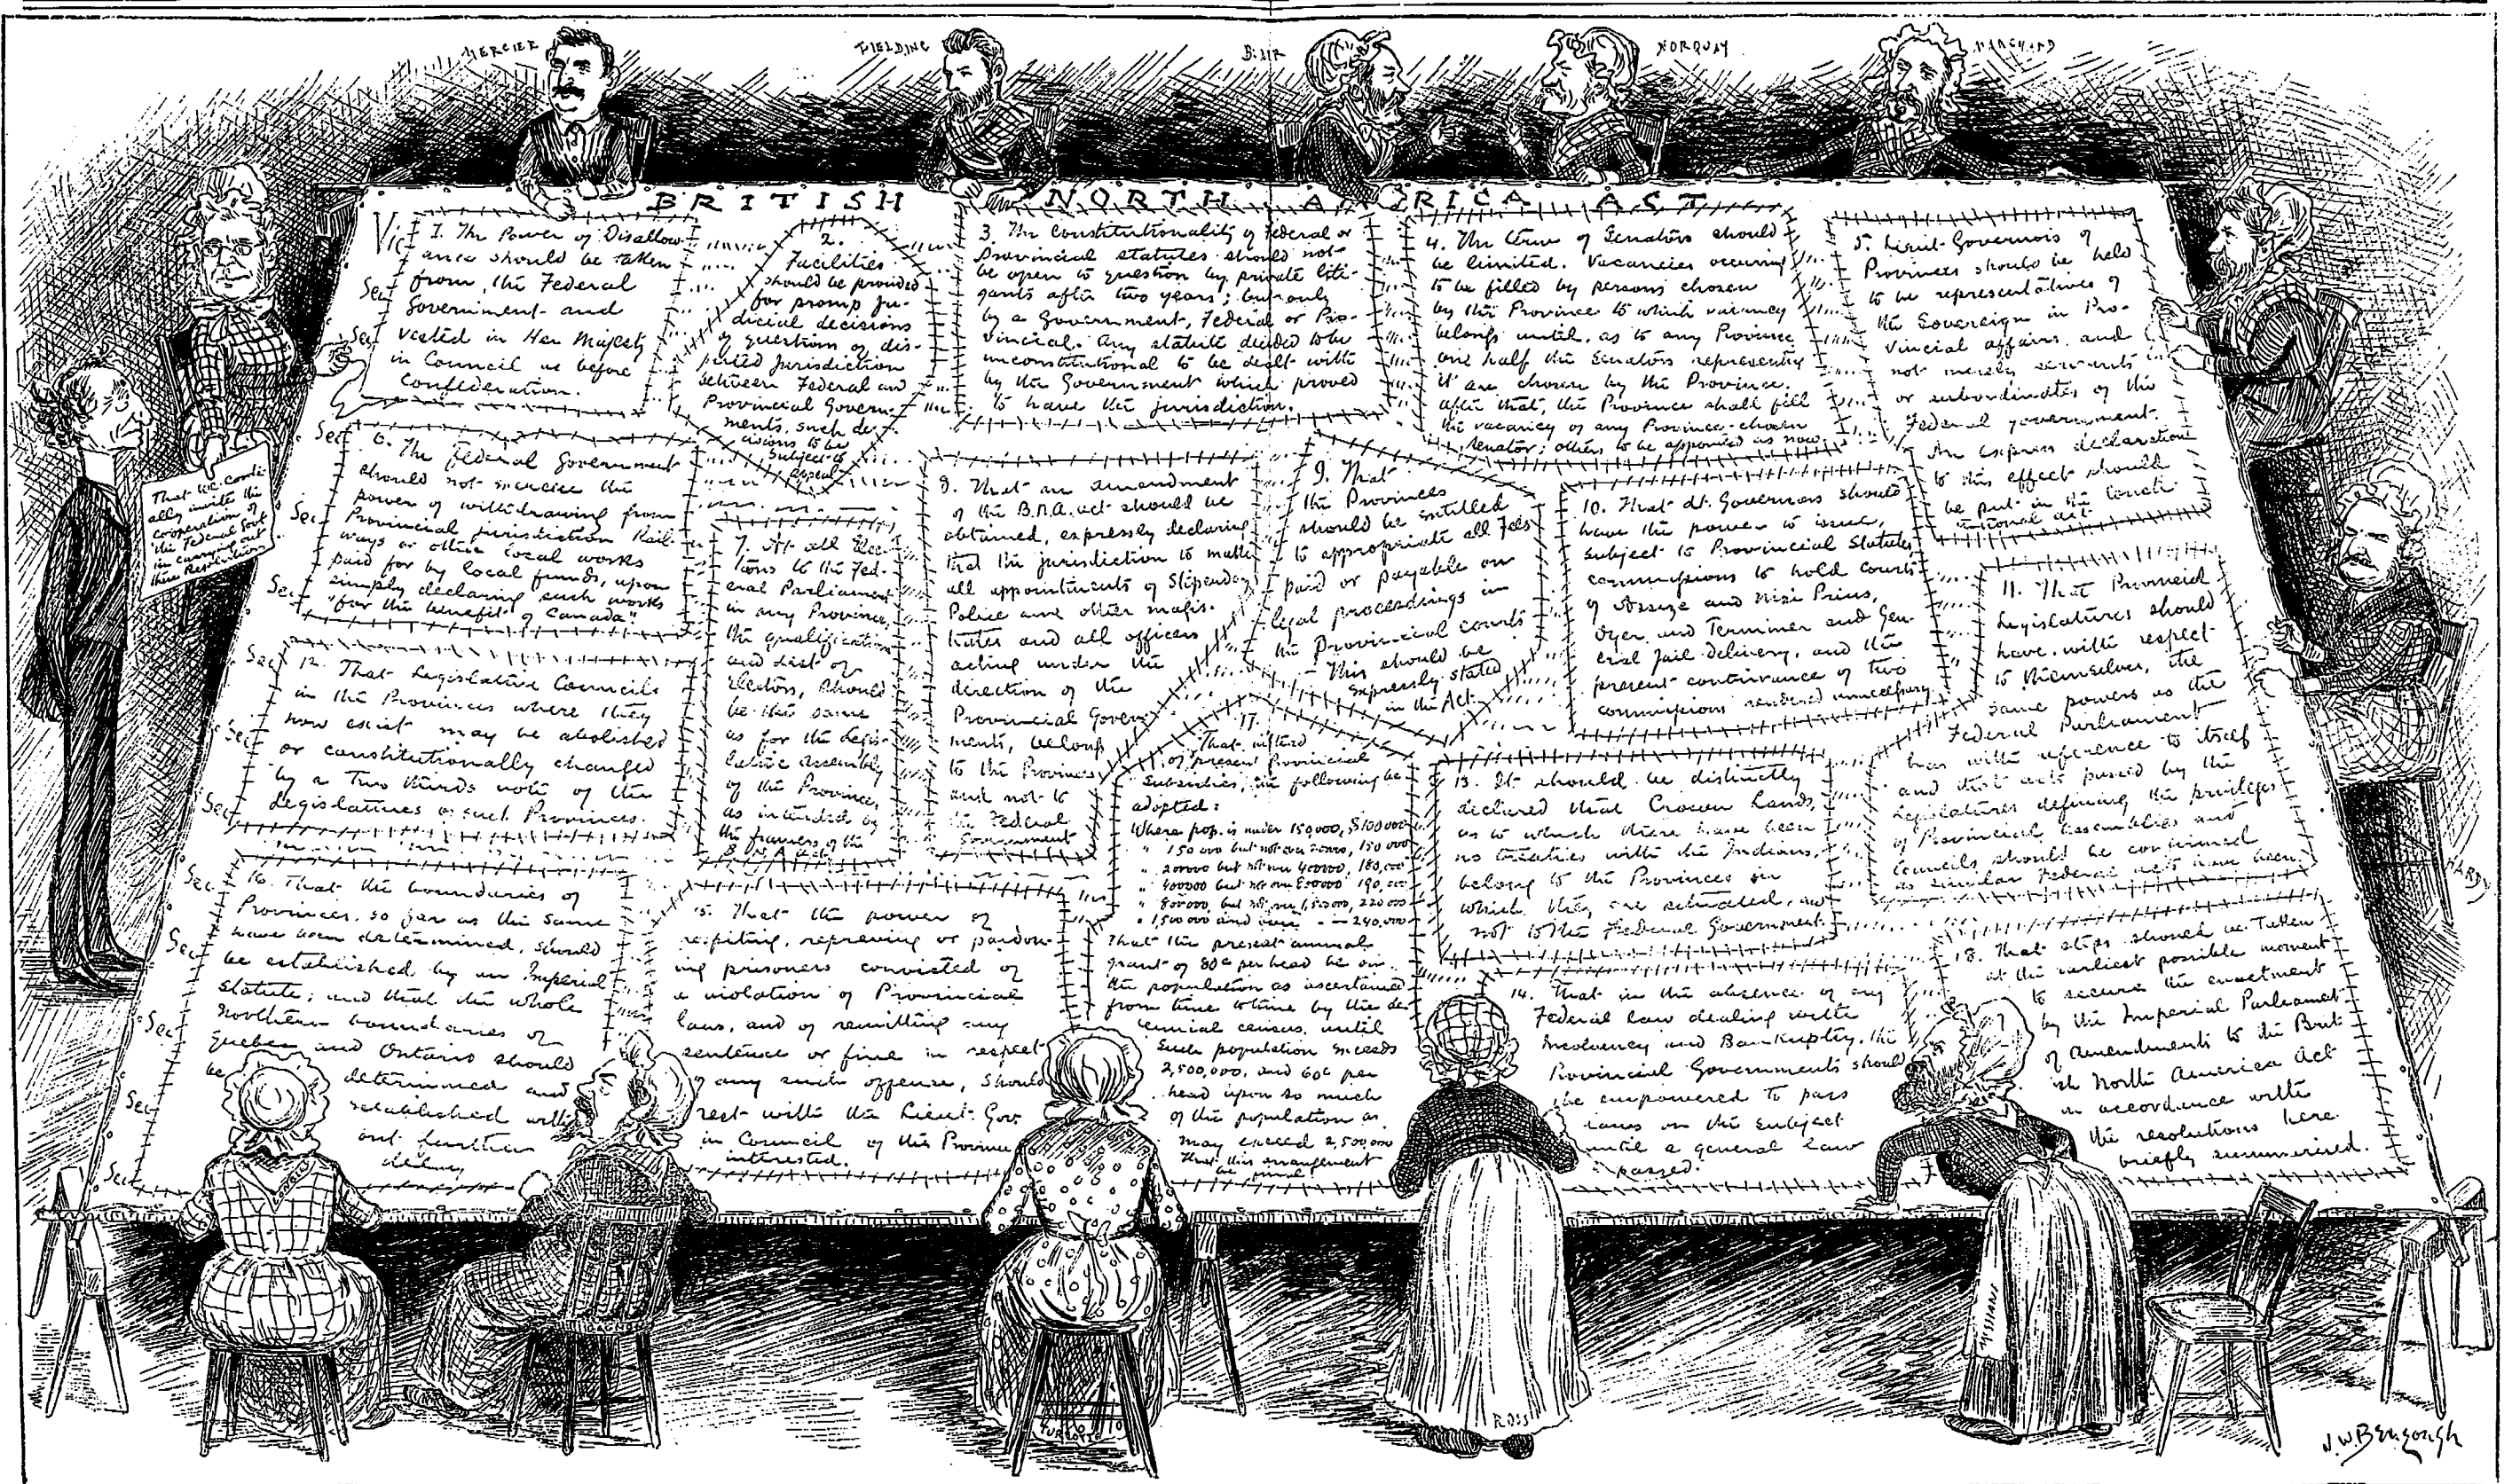 MERCIER
FIELDING
BLAIR
NORQUAY
MARCHAND
BRITISH NORTH A RICA AST
Vic
1. The Power of Disallow-
ance should be taken
from the Federal
Government and
vested in Her Majesty
in Council as before
Confederation.
2.
Facilities
should be provided
for promp ju-
dicial decisions
of questions of dis-
puted jurisdiction
between Federal and
Provincial Govern-
ments, such de-
cisions to be
subject to
appeal
3. The constitutionality of Federal or
Provincial statutes should not
be open to question by private liti-
gants after two years; but only
by a Government, Federal or Pro-
vincial. Any statute decided to be
unconstitutional to be dealt with
by the Government which proved
to have the jurisdiction.
4. The term of Senators should
be limited. Vacancies occurring
to be filled by persons chosen
by the Province to which vacancy
belongs until, as to any Province
one half the Senators representing
it are chosen by the Province.
After that, the Province shall fill
the vacancy of any Province-chosen
Senator; others to be appointed as now
5. Lieut-Governors of
Provinces should be held
to be representatives of
the Sovereign in Pro-
vincial affairs and
not merely servants
or subordinates of the
Federal government.
An express declaration
to this effect should
be put in the consti-
tutional act
Sec
Sec
Sec
Sec
Sec
Sec
Sec
Sec
Sec
Sec
Sec
Sec
Sec
Sec
That we cordi-
ally invite the
cooperation of
the Federal Govt
in carrying out
these Resolutions
6. The Federal Government
should not exercise the
power of withdrawing from
Provincial jurisdiction Rail-
ways or other local works
paid for by local funds, upon
simply declaring such works
"for the benefit of Canada"
7. At all Elec-
tions to the Fed-
eral Parliament
in any Province,
the qualification
and list of
Electors, should
be the same
as for the Legis-
lative assembly
of the Province,
as intended by
the framers of the
B N A Act
8. That an amendment
of the B.N.A. act should be
obtained, expressly declaring
that the jurisdiction to make
all appointments of Stipendy
Police and other magis-
trates and all officers
acting under the
direction of the
Provincial Govern-
ments, belongs
to the Provinces
and not to
the Federal
Government
9. That
the Provinces
should be entitled
to appropriate all fees
paid or payable on
legal proceedings in
the Provincial courts
This should be
expressly stated
in the Act
10. That Lt. Governors should
have the power to issue,
subject to Provincial Statutes
commissions to hold courts
of Assize and Nisi Prius,
Oyer and Terminer and Gen-
eral Jail delivery, and the
present contrivance of two
commissions rendered unnecessary
11. That Provincial
Legislatures should
have, with respect
to themselves, the
same powers as the
Federal Parliament
has with reference to itself
and that acts passed by the
Legislatures defining the privileges
of Provincial Assemblies and
Councils should be confirmed
as similar Federal acts have been
12. That Legislative Councils
in the Provinces where they
now exist may be abolished
or constitutionally changed
by a two thirds vote of the
Legislatures of such Provinces.
17.
That instead
of present Provincial
Subsidies, the following be
adopted:
Where pop. is under 150,000, $100000
" 150 000 but not over 200000, 150 000
" 200000 but not over 400000, 180,000
" 400000 but not over 800000 190,000
" 800000, but not over 1,500,000, 220 000
" 1,500 000 and over - 240,000
That the present annual
grant of 80c per head be on
the population as ascertained
from time to time by the de-
cennial census, until
such population exceeds
2,500,000, and 60c per
head upon so much
of the population as
may exceed 2,500,000
That this arrangement
be final
13. It should be distinctly
declared that Crown Lands,
as to which there have been
no treaties with the Indians,
belong to the Provinces in
which they are situated, and
not to the Federal Government
HARDY
16. That the boundaries of
Provinces, so far as the same
have been determined, should
be established by an Imperial
statute; and that the whole
Northern boundaries of
Quebec and Ontario should
be determined and
established with
out further
delay
15. That the power of
respiting, reprieving or pardon-
ing prisoners convicted of
a violation of Provincial
laws, and of remitting any
sentence or fine in respect
of any such offense, should
rest with the Lieut. Gov.
in Council of the Province
interested.
14. That in the absence of any
Federal law dealing with
Insolvency and Bankruptcy, the
Provincial Governments should
be empowered to pass
laws on the subject
until a general law
is passed.
18. That steps should be taken
at the earliest possible moment
to secure the enactment
by the Imperial Parliament
of amendments to the Brit-
ish North America Act
in accordance with
the resolutions here
briefly summarized.
TURCOTTE
ROSS
J.W.Bengough